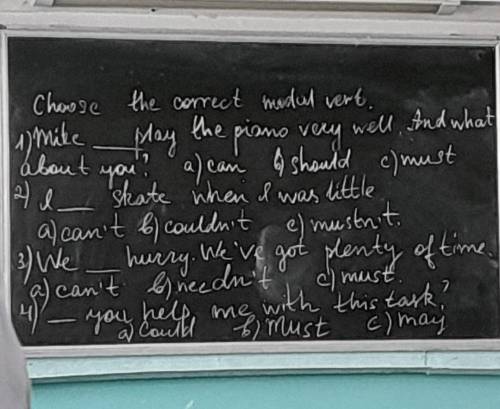 Choose the correct modal verb.
1) Mike ___ play the piano very well. And what
about you? a) can b) should c) must
2) I ___ skate when I was little
a) can't b) couldn't c) mustn't.
3) We ___ hurry. We've got plenty of time.
a) can't b) needn't c) must.
4) ___ you help me with this task?
a) could b) Must c) may